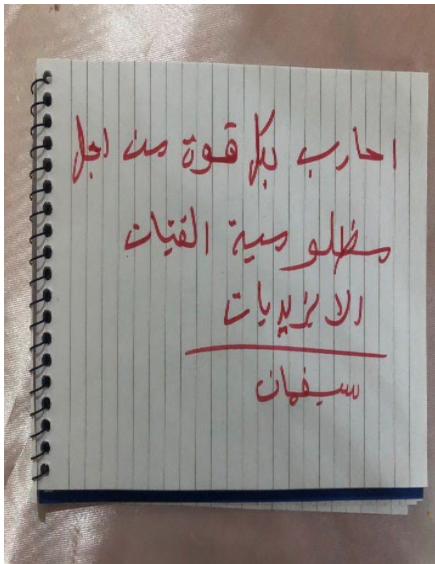 احارب بكل قوة من اجل
مظلومية الفتيات
الايزيديات
سيفان